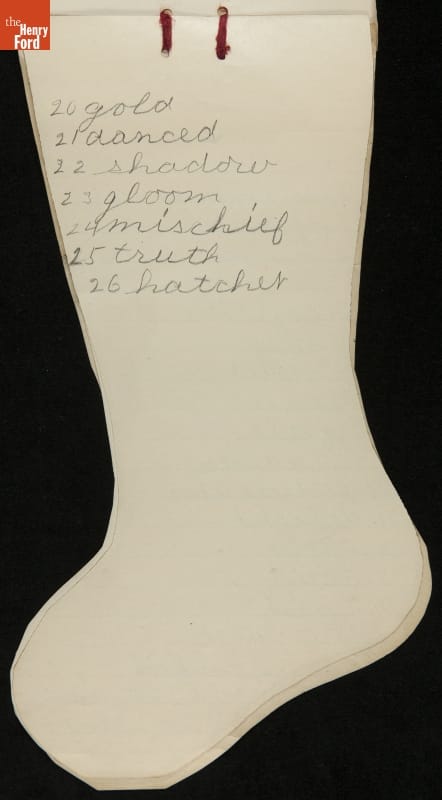 the
Henry
Ford
20 gold
21 danced
22 shadow
23 gloom
24 mischief
25 truth
26 hatchet